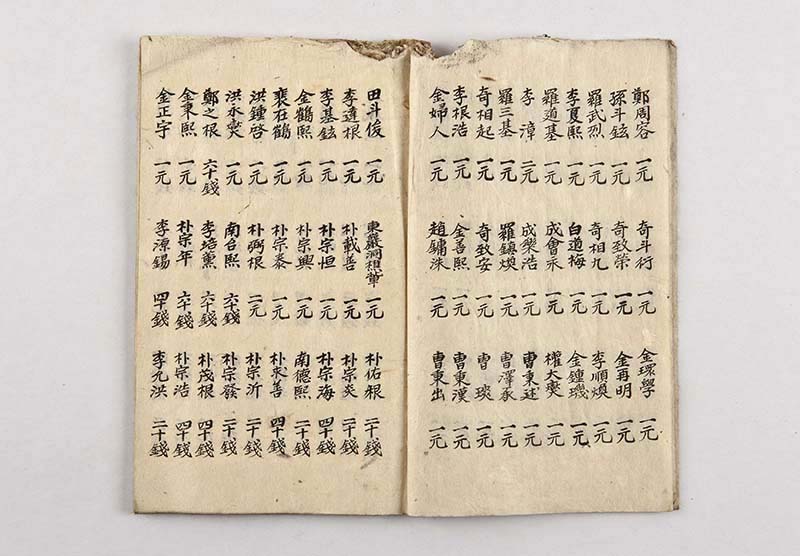 鄭周容 一元 奇斗行 一元 金環學 一元
孫斗鉉 一元 奇致榮 一元 金再明 一元
羅武烈 一元 奇相九 一元 李順煥 一元
李夏熙 一元 白道梅 一元 金鍾璣 一元
羅道基 一元 成會永 一元 權大奭 一元
李漳 二元 成樂浩 一元 曺秉廷 一元
羅三基 一元 羅鎭煥 一元 曺澤承 一元
奇相起 一元 奇致安 一元 曺琰 一元
李根浩 一元 金善熙 一元 曺秉漢 一元
金婦人 一元 趙鏞洙 一元 曺秉出 一元
田斗俊 一元 東巖洞 一元 朴佑根 二十錢
李達根 一元 朴載善 一元 朴宗炎 二十錢
李基鉉 一元 朴宗恒 一元 朴宗海 四十錢
金鶴熙 一元 朴宗興 一元 南德熙 二十錢
裵在鶴 一元 朴宗泰 一元 朴求善 四十錢
洪鍾啓 一元 朴弼根 二元 朴宗沂 二十錢
洪永奭 一元 南台熙 六十錢 朴宗發 二十錢
鄭之根 六十錢 李培薰 六十錢 朴茂根 四十錢
金秉熙 一元 朴宗年 六十錢 朴宗浩 四十錢
金正宇 一元 李漳錫 四十錢 李九洪 二十錢